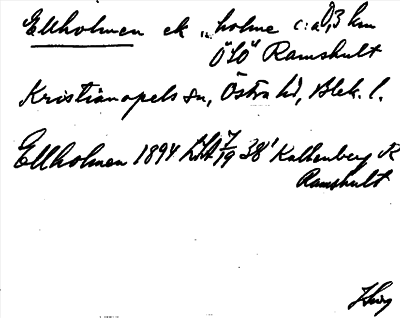 Ellholmen ek „holme c:a 0,3 km
ÖSÖ" Ramshult
Kristianopels sn, Östra hd, Blek. l.
Ellholmen 1894 LSA 7/19 38' Kallenberg R
Ramshult